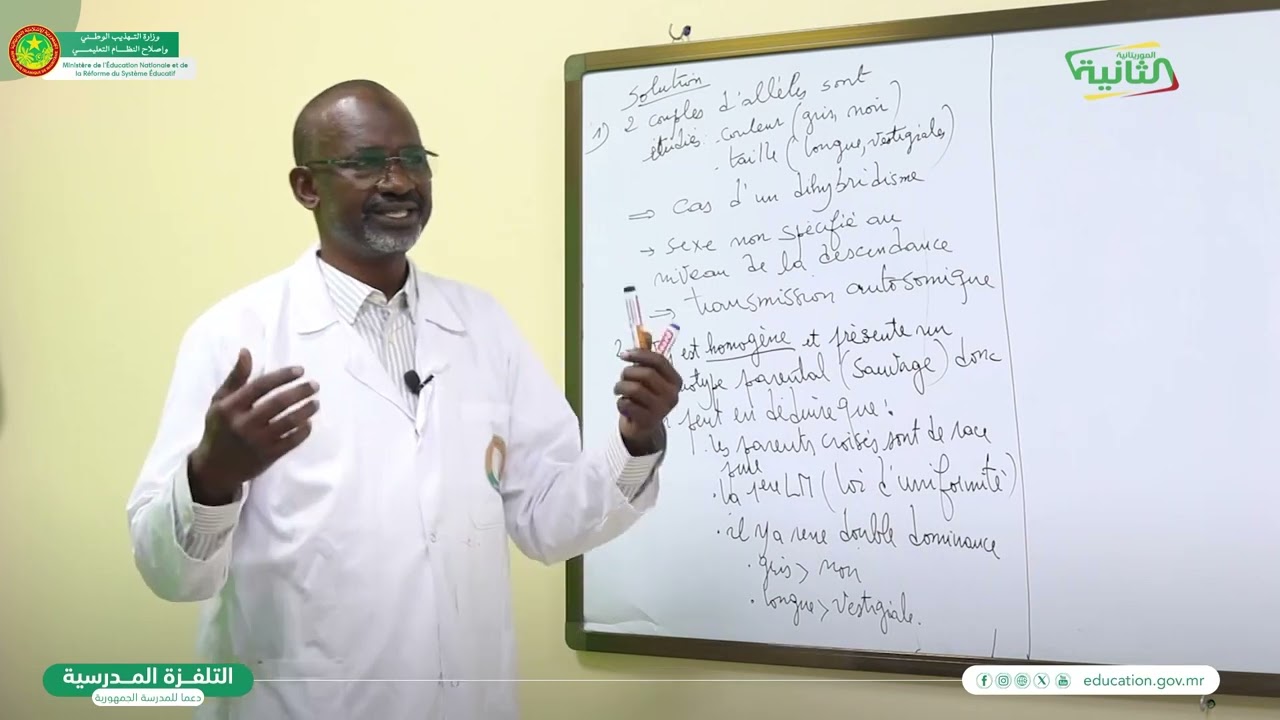 وزارة التهذيب الوطني
وإصلاح النظام التعليمي
Ministère de l'Éducation Nationale et de
la Réforme du Système Éducatif
الموريتانية
الثانية
Solution
1) 2 couples d'allèles sont
étudiés - couleur (gris, noir)
- taille (longue, vestigiales)
⇒ cas d'un dihybridisme
→ sexe non spécifié au
niveau de la descendance
⇒ transmission autosomique
2 est homogène et présente un
parental (sauvage) donc
peut en déduire que :
les parents croisés sont de race
pure
. la 1ère LM (loi d'uniformité)
. il ya une double dominance
. gris > noir
. longue > vestigiale.
التلفزة المدرسية
دعما للمدرسة الجمهورية
education.gov.mr